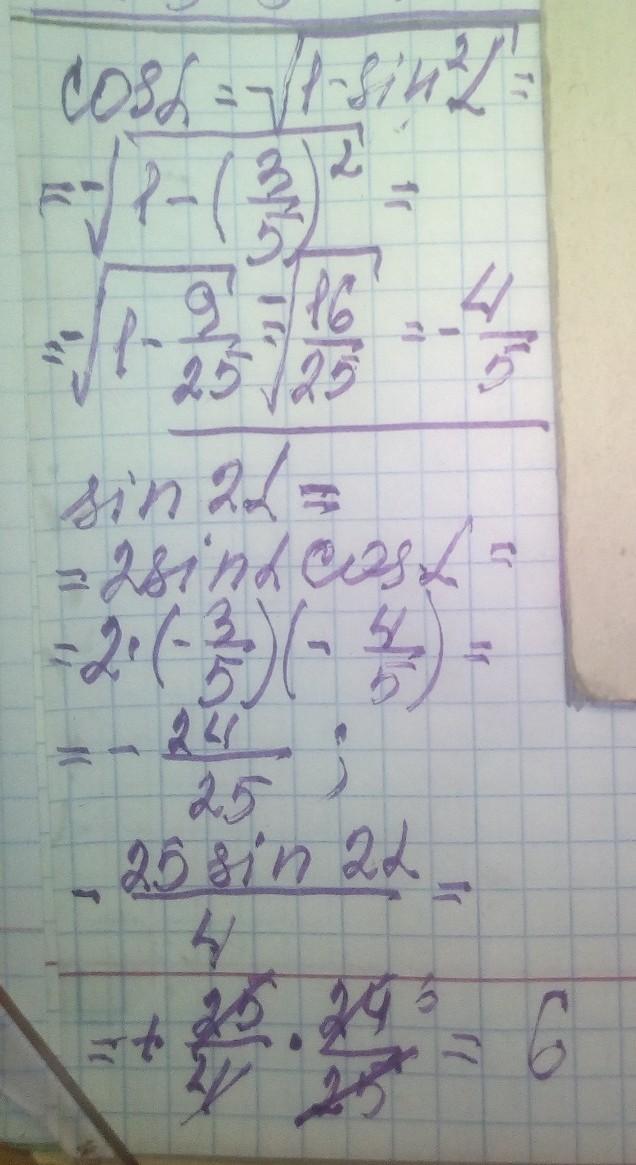 cosα = -√(1-sin²α) =
= -√(1-(3/5)²) =
= -√(1-9/25) = -√(16/25) = -4/5
sin 2α =
= 2sinα cosα =
= 2·(-3/5)(-4/5) =
= -24/25 ;
-25 sin 2α/4 =
= + 25/4 · 24⁶/25 = 6